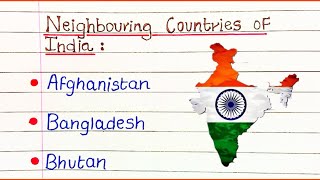 Neighbouring Countries of
India :
• Afghanistan
• Bangladesh
• Bhutan